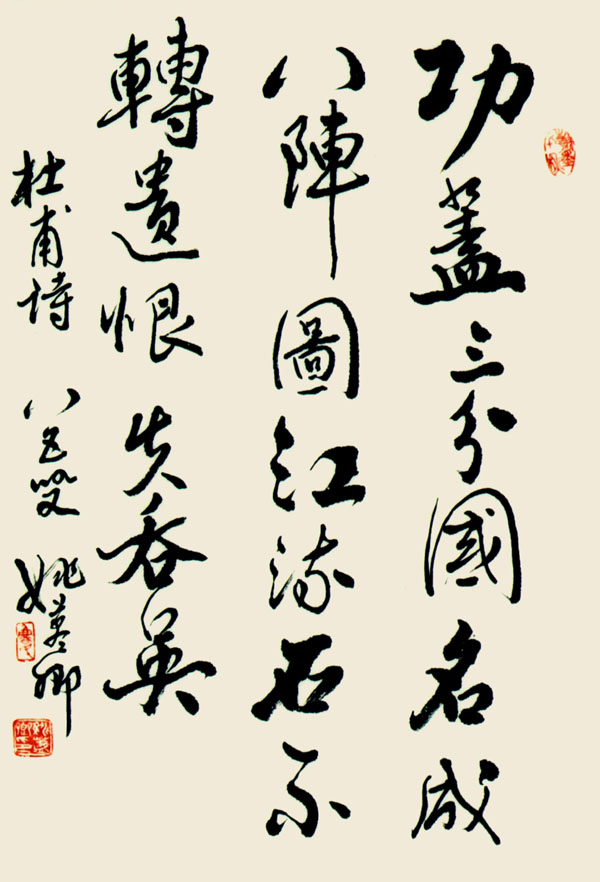 功蓋三分國名成
八陣圖江流石不
轉遺恨失吞英
杜甫诗 八五叟 姚卿